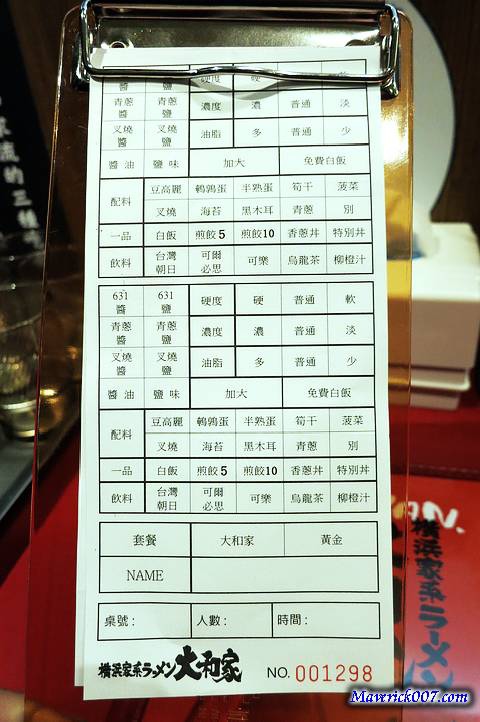 硬度 硬 軟
青蔥醬 青蔥鹽 濃度 濃 普通 淡
叉燒醬 叉燒鹽 油脂 多 普通 少
醬油 鹽味 加大 免費白飯
配料 豆高麗 鵪鶉蛋 半熟蛋 筍干 菠菜
叉燒 海苔 黑木耳 青蔥 別
一品 白飯 煎餃5 煎餃10 香蔥丼 特別丼
飲料 台灣朝日 可爾必思 可樂 烏龍茶 柳橙汁
631醬 631鹽 硬度 硬 普通 軟
青蔥醬 青蔥鹽 濃度 濃 普通 淡
叉燒醬 叉燒鹽 油脂 多 普通 少
醬油 鹽味 加大 免費白飯
配料 豆高麗 鵪鶉蛋 半熟蛋 筍干 菠菜
叉燒 海苔 黑木耳 青蔥 別
一品 白飯 煎餃5 煎餃10 香蔥丼 特別丼
飲料 台灣朝日 可爾必思 可樂 烏龍茶 柳橙汁
套餐 大和家 黃金
NAME
桌號: 人數: 時間:
横浜家系ラーメン 大和家 NO. 001298
横浜家系ラーメン
流的三種
Maverick007.com